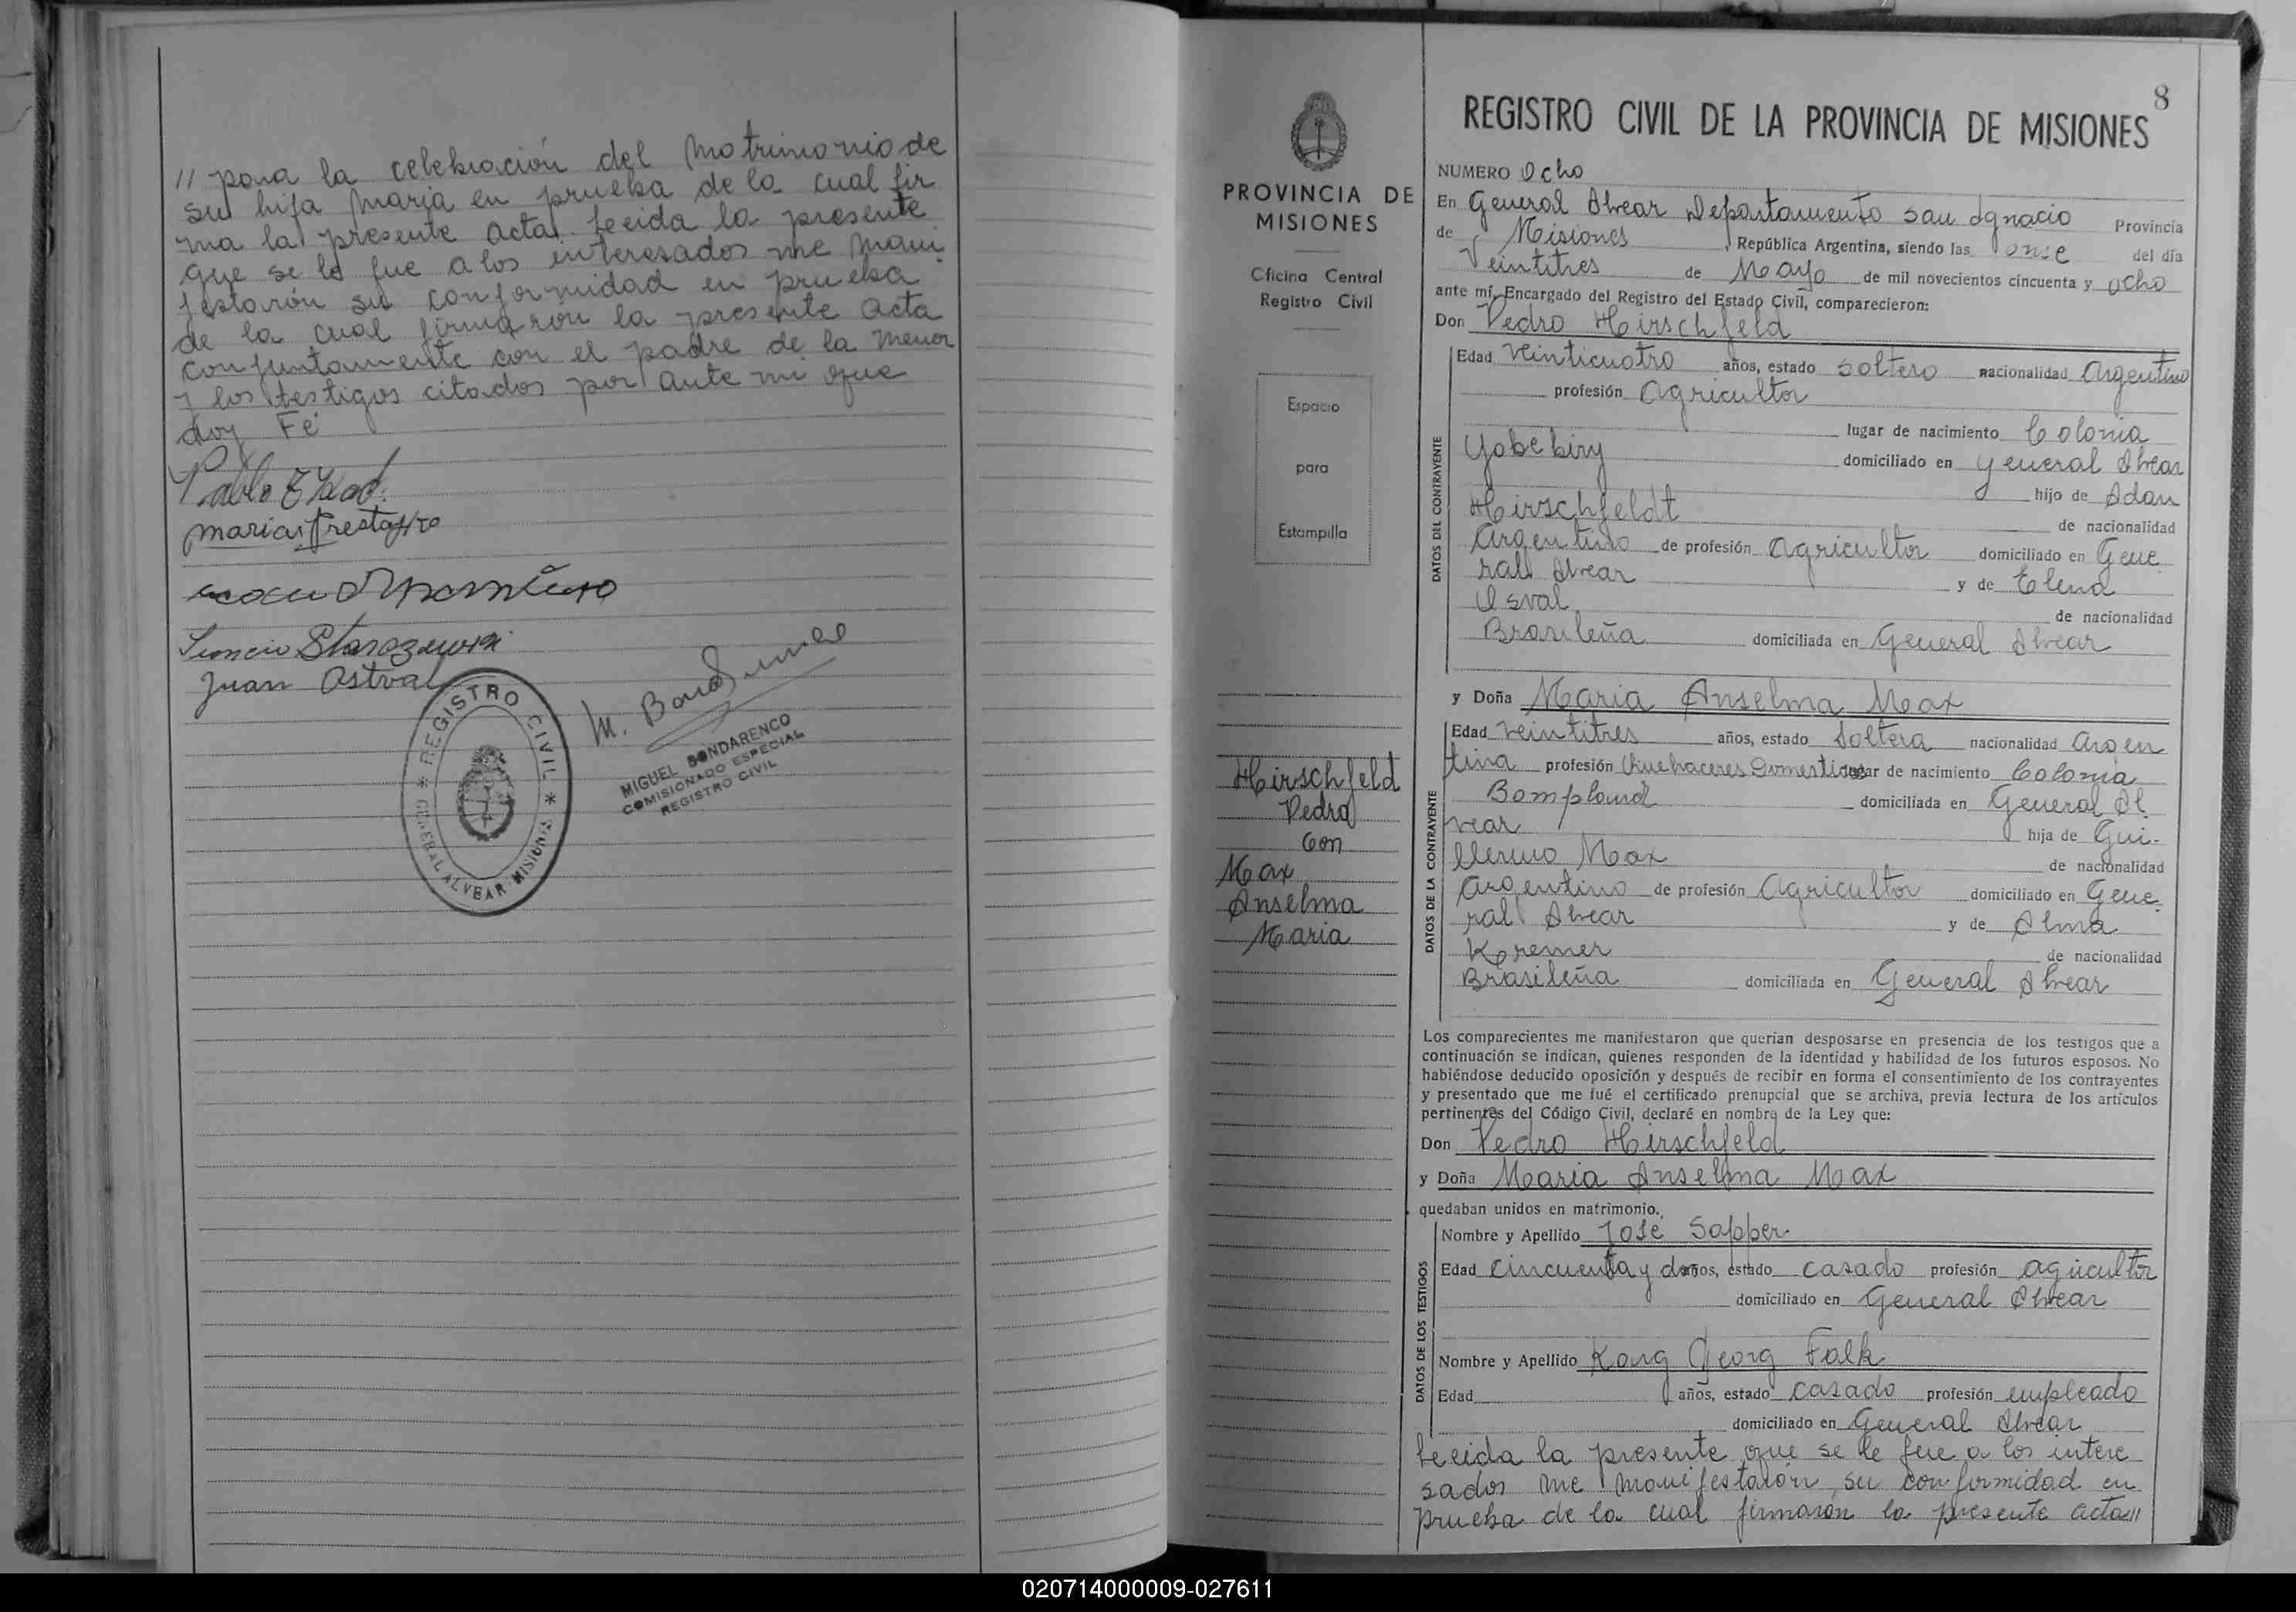 // para la celebración del Matrimonio de
su hija Maria en prueba de la cual fir
ma la presente acta. Leida la presente
que se le fue a los interesados me mani
festarón su conformidad en prueba
de la cual firmarón la presente acta
conjuntamente con el padre de la menor
y los testigos citados por ante mi que
doy Fé
Juan Ostval
REGISTRO CIVIL
GENERAL ALVEAR MISIONES
MIGUEL BONDARENCO
COMISIONADO ESPECIAL
REGISTRO CIVIL
PROVINCIA DE
MISIONES
Oficina Central
Registro Civil
Espacio
para
Estampilla
Hirschfeld
Pedro
Con
Max
Anselma
Maria
8
REGISTRO CIVIL DE LA PROVINCIA DE MISIONES
NUMERO Ocho
En General Alvear Departamento San Ignacio Provincia
de Misiones, República Argentina, siendo las once del día
Veintitres de Mayo de mil novecientos cincuenta y ocho
ante mí, Encargado del Registro del Estado Civil, comparecieron:
Don Pedro Hirschfeld
DATOS DEL CONTRAYENTE
Edad Veinticuatro años, estado soltero nacionalidad Argentino
profesión Agricultor
lugar de nacimiento Colonia
Yabebiry domiciliado en General Alvear
hijo de Adan
Hirschfeldt de nacionalidad
Argentino de profesión Agricultor domiciliado en Gene
ral Alvear y de Elena
Osval de nacionalidad
Brasileña domiciliada en General Alvear
y Doña Maria Anselma Max
DATOS DE LA CONTRAYENTE
Edad Veintitres años, estado Soltera nacionalidad Argen
tina profesión Quehaceres Domesticos lugar de nacimiento Colonia
Bompland domiciliada en General Al
vear hija de Gui-
llermo Max de nacionalidad
Argentino de profesión Agricultor domiciliado en Gene
ral Alvear y de Alma
Kremer de nacionalidad
Brasileña domiciliada en General Alvear
Los comparecientes me manifestaron que querían desposarse en presencia de los testigos que a
continuación se indican, quienes responden de la identidad y habilidad de los futuros esposos. No
habiéndose deducido oposición y después de recibir en forma el consentimiento de los contrayentes
y presentado que me fué el certificado prenupcial que se archiva, previa lectura de los artículos
pertinentes del Código Civil, declaré en nombre de la Ley que:
Don Pedro Hirschfeld
y Doña Maria Anselma Max
quedaban unidos en matrimonio.
DATOS DE LOS TESTIGOS
Nombre y Apellido José Sapper
Edad cincuenta y dos años, estado casado profesión agricultor
domiciliado en General Alvear
Nombre y Apellido Georg Falk
Edad años, estado casado profesión empleado
domiciliado en General Alvear
Leeida la presente que se le fue a los intere
sados me manifestarón su conformidad en
prueba de la cual firmarón la presente acta//
020714000009-027611